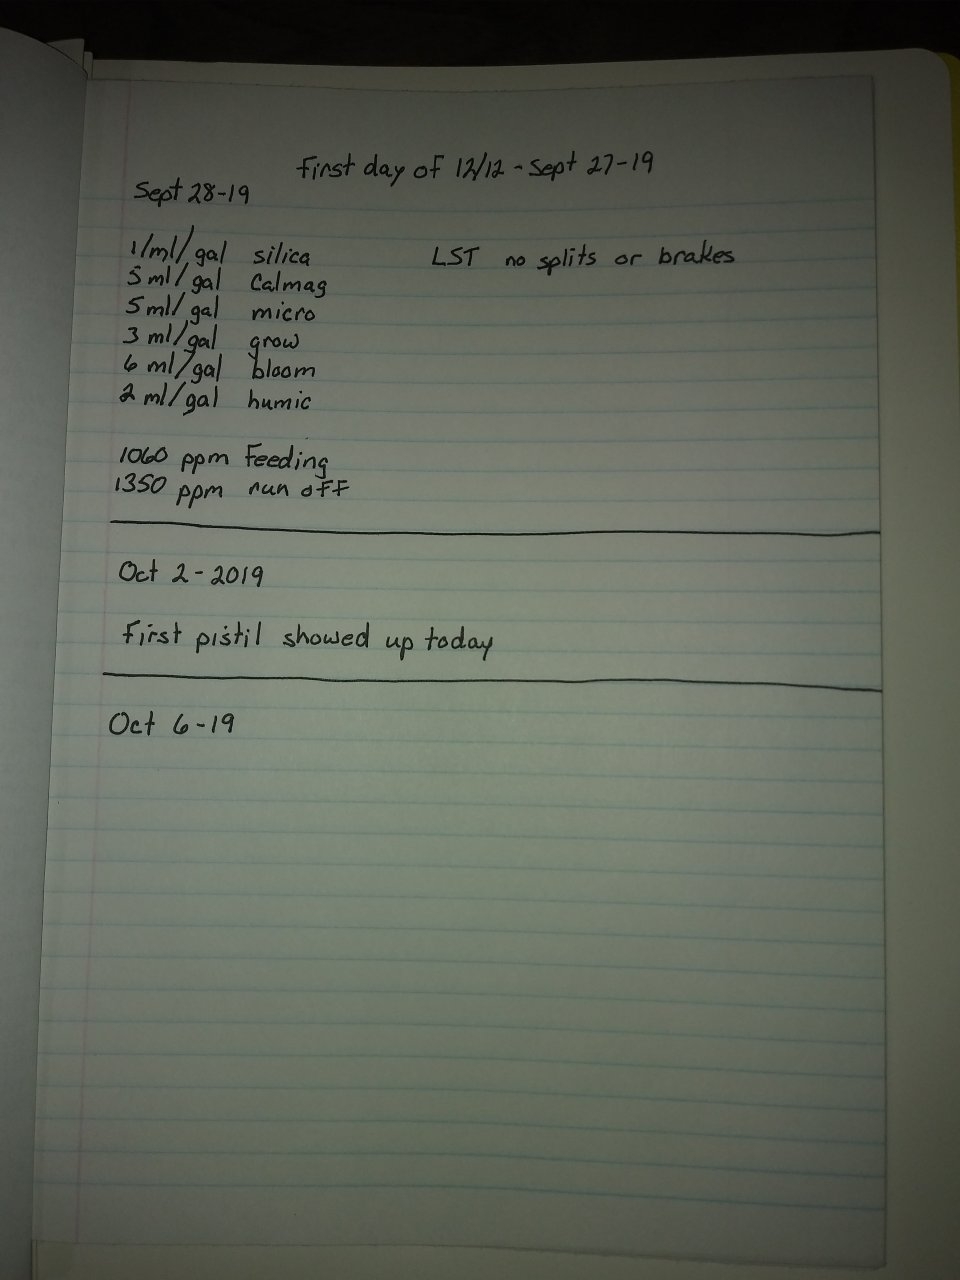 First day of 12/12 - Sept 27-19
Sept 28-19
1/ml/gal silica LST no splits or brakes
5 ml/gal Calmag
5 ml/gal micro
3 ml/gal grow
6 ml/gal bloom
2 ml/gal humic
1060 ppm Feeding
1350 ppm run off
Oct 2-2019
First pistil showed up today
Oct 6-19